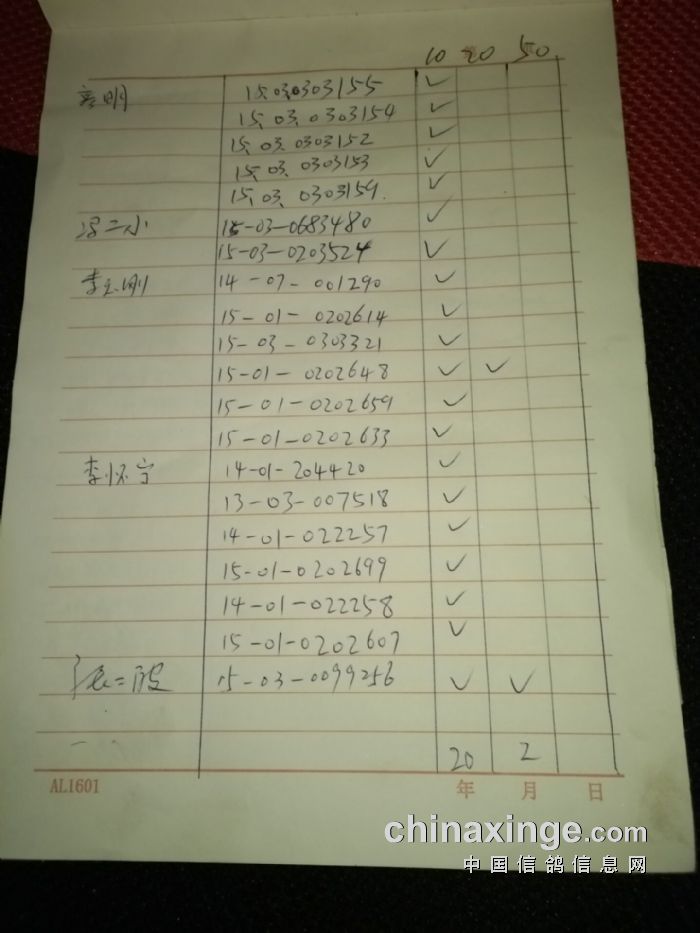 10 20 50
彭明 15.03.0303155 ✓
15.03.0303154 ✓
15.03.0303152 ✓
15.03.0303153 ✓
15.03.0303159. ✓
冯二小 15-03-0683480 ✓
15-03-0203524 ✓
李玉刚 14-07-001290 ✓
15-01-0202614 ✓
15-03-0303321 ✓
15-01-0202648 ✓ ✓
15-01-0202659 ✓
15-01-0202633 ✓
李怀宁 14-01-204420 ✓
13-03-007518 ✓
14-01-022257 ✓
15-01-0202699 ✓
14-01-022258 ✓
15-01-0202607 ✓
二 15-03-0099256 ✓ ✓
20 2
AL1601 年 月 日
chinaxinge.com
中国信鸽信息网